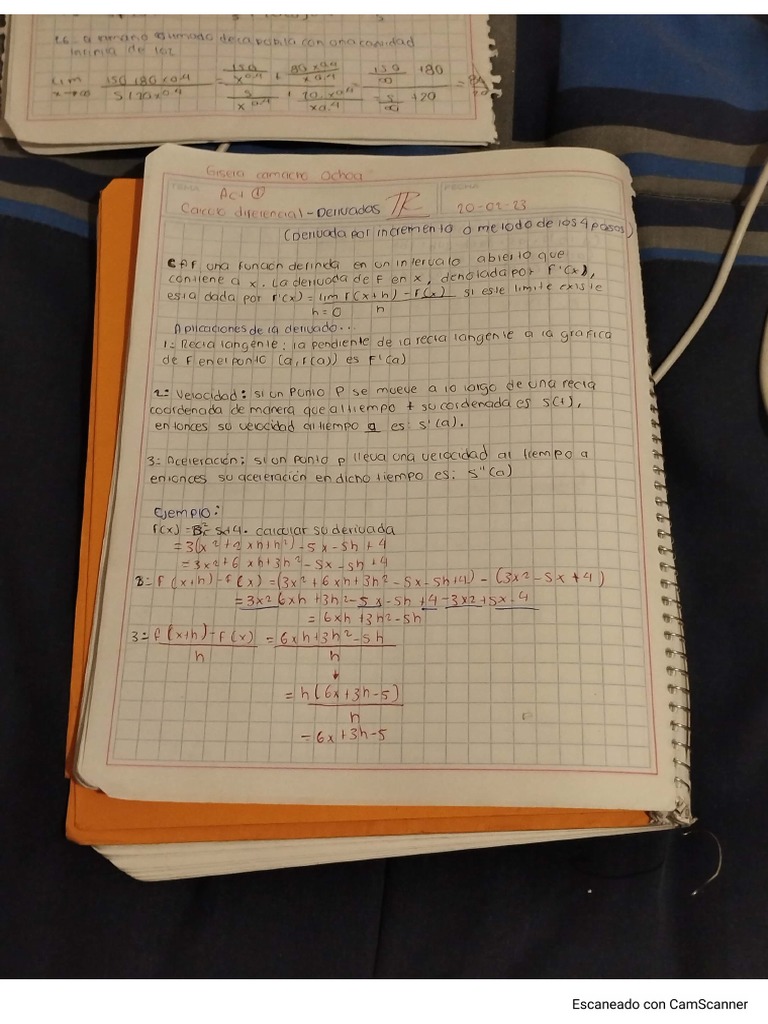 infinita de
lim 150 + 80x0.4 = 150 + 80x0.4 = 150 + 80
x→∞ 5 + 20x0.4 5 + 20x0.4 5 + 20
x0.4 x0.4 ∞
Gisela camacho Ochoa
TEMA FECHA
Act ①
Calculo diferencial - Derivadas 20-02-23
(Derivada por incremento o metodo de los 4 pasos)
una función definida en un intervalo abierto que
contiene a x. La derivada de f en x, denotada por F'(x),
esta dada por F'(x) = lim f(x+h) - f(x) si este limite existe
h=0 h
Aplicaciones de la derivada...
1= Recta tangente: la pendiente de la recta tangente a la grafica
de F en el punto (a, f(a)) es F'(a)
2= Velocidad: si un Punto P se mueve a lo largo de una recta
coordenada de manera que al tiempo t su cordenada es s(t),
entonces su velocidad al tiempo a es: s'(a).
3= Aceleración: si un punto p lleva una velocidad al tiempo a
entonces su aceleración en dicho tiempo es: s"(a)
Ejemplo:
calcular su derivada
= 3(x²+2xh+h²) - 5x - 5h + 4
= 3x²+6xh+3h² - 5x - 5h + 4
2= F(x+h) - f(x) = (3x²+6xh+3h²-5x-5h+4) - (3x²-5x+4)
= 3x² 6xh +3h² - 5x - 5h + 4 - 3x² + 5x - 4
= 6xh + 3h² - 5h
3= f(x+h) - f(x) = 6xh + 3h² - 5h
h h
= h(6x + 3h - 5)
h
= 6x + 3h - 5
Escaneado con CamScanner